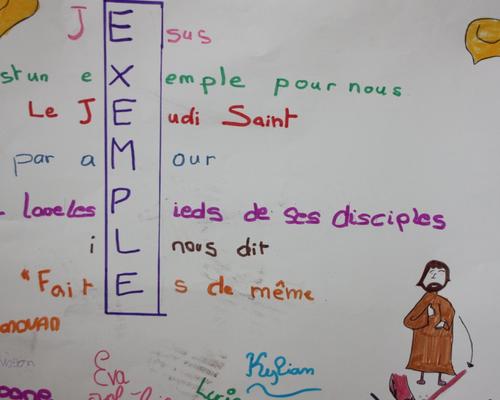 JEsus
st un eXemple pour nous
Le JEudi Saint
par aMour
lave les Pieds de ses disciples
iL nous dit
"FaitEs de même
Eva
Kylian